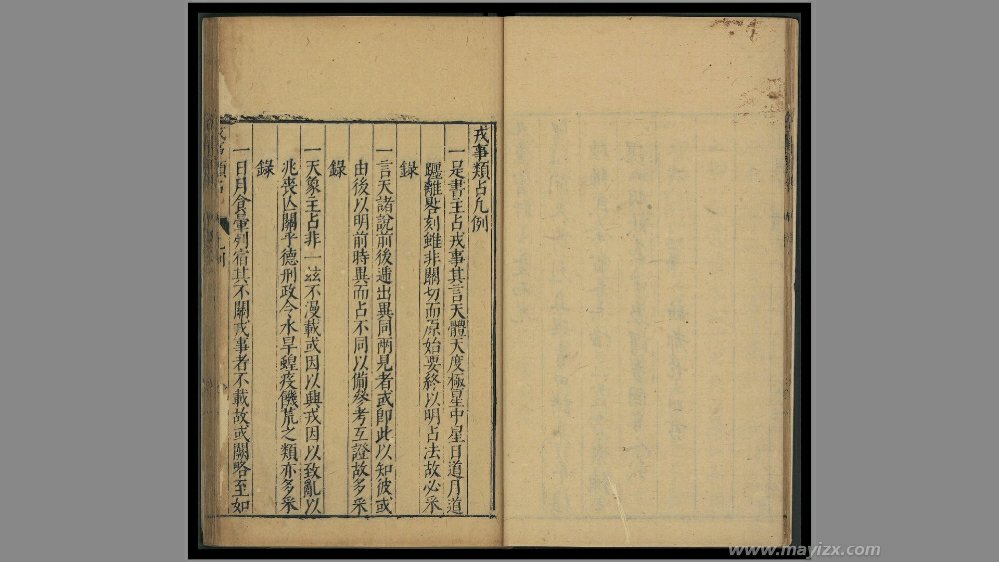 戎事類占凡例
一是書主占戎事其言天體天度極星中星日道月道
躔離晷刻雖非關切而原始要終以明占法故必采
錄
一言天諸說前後遞出異同兩見者或即此以知彼或
由後以明前時異而占不同以備參考互證故多采
錄
一天象主占非一玆不漫載或因以興戎因以致亂以
兆喪亾關乎德刑政令水旱蝗疫饑荒之類亦多采
錄
一日月食暈列宿其不關戎事者不載故或闕略至如
類占
www.mayizx.com